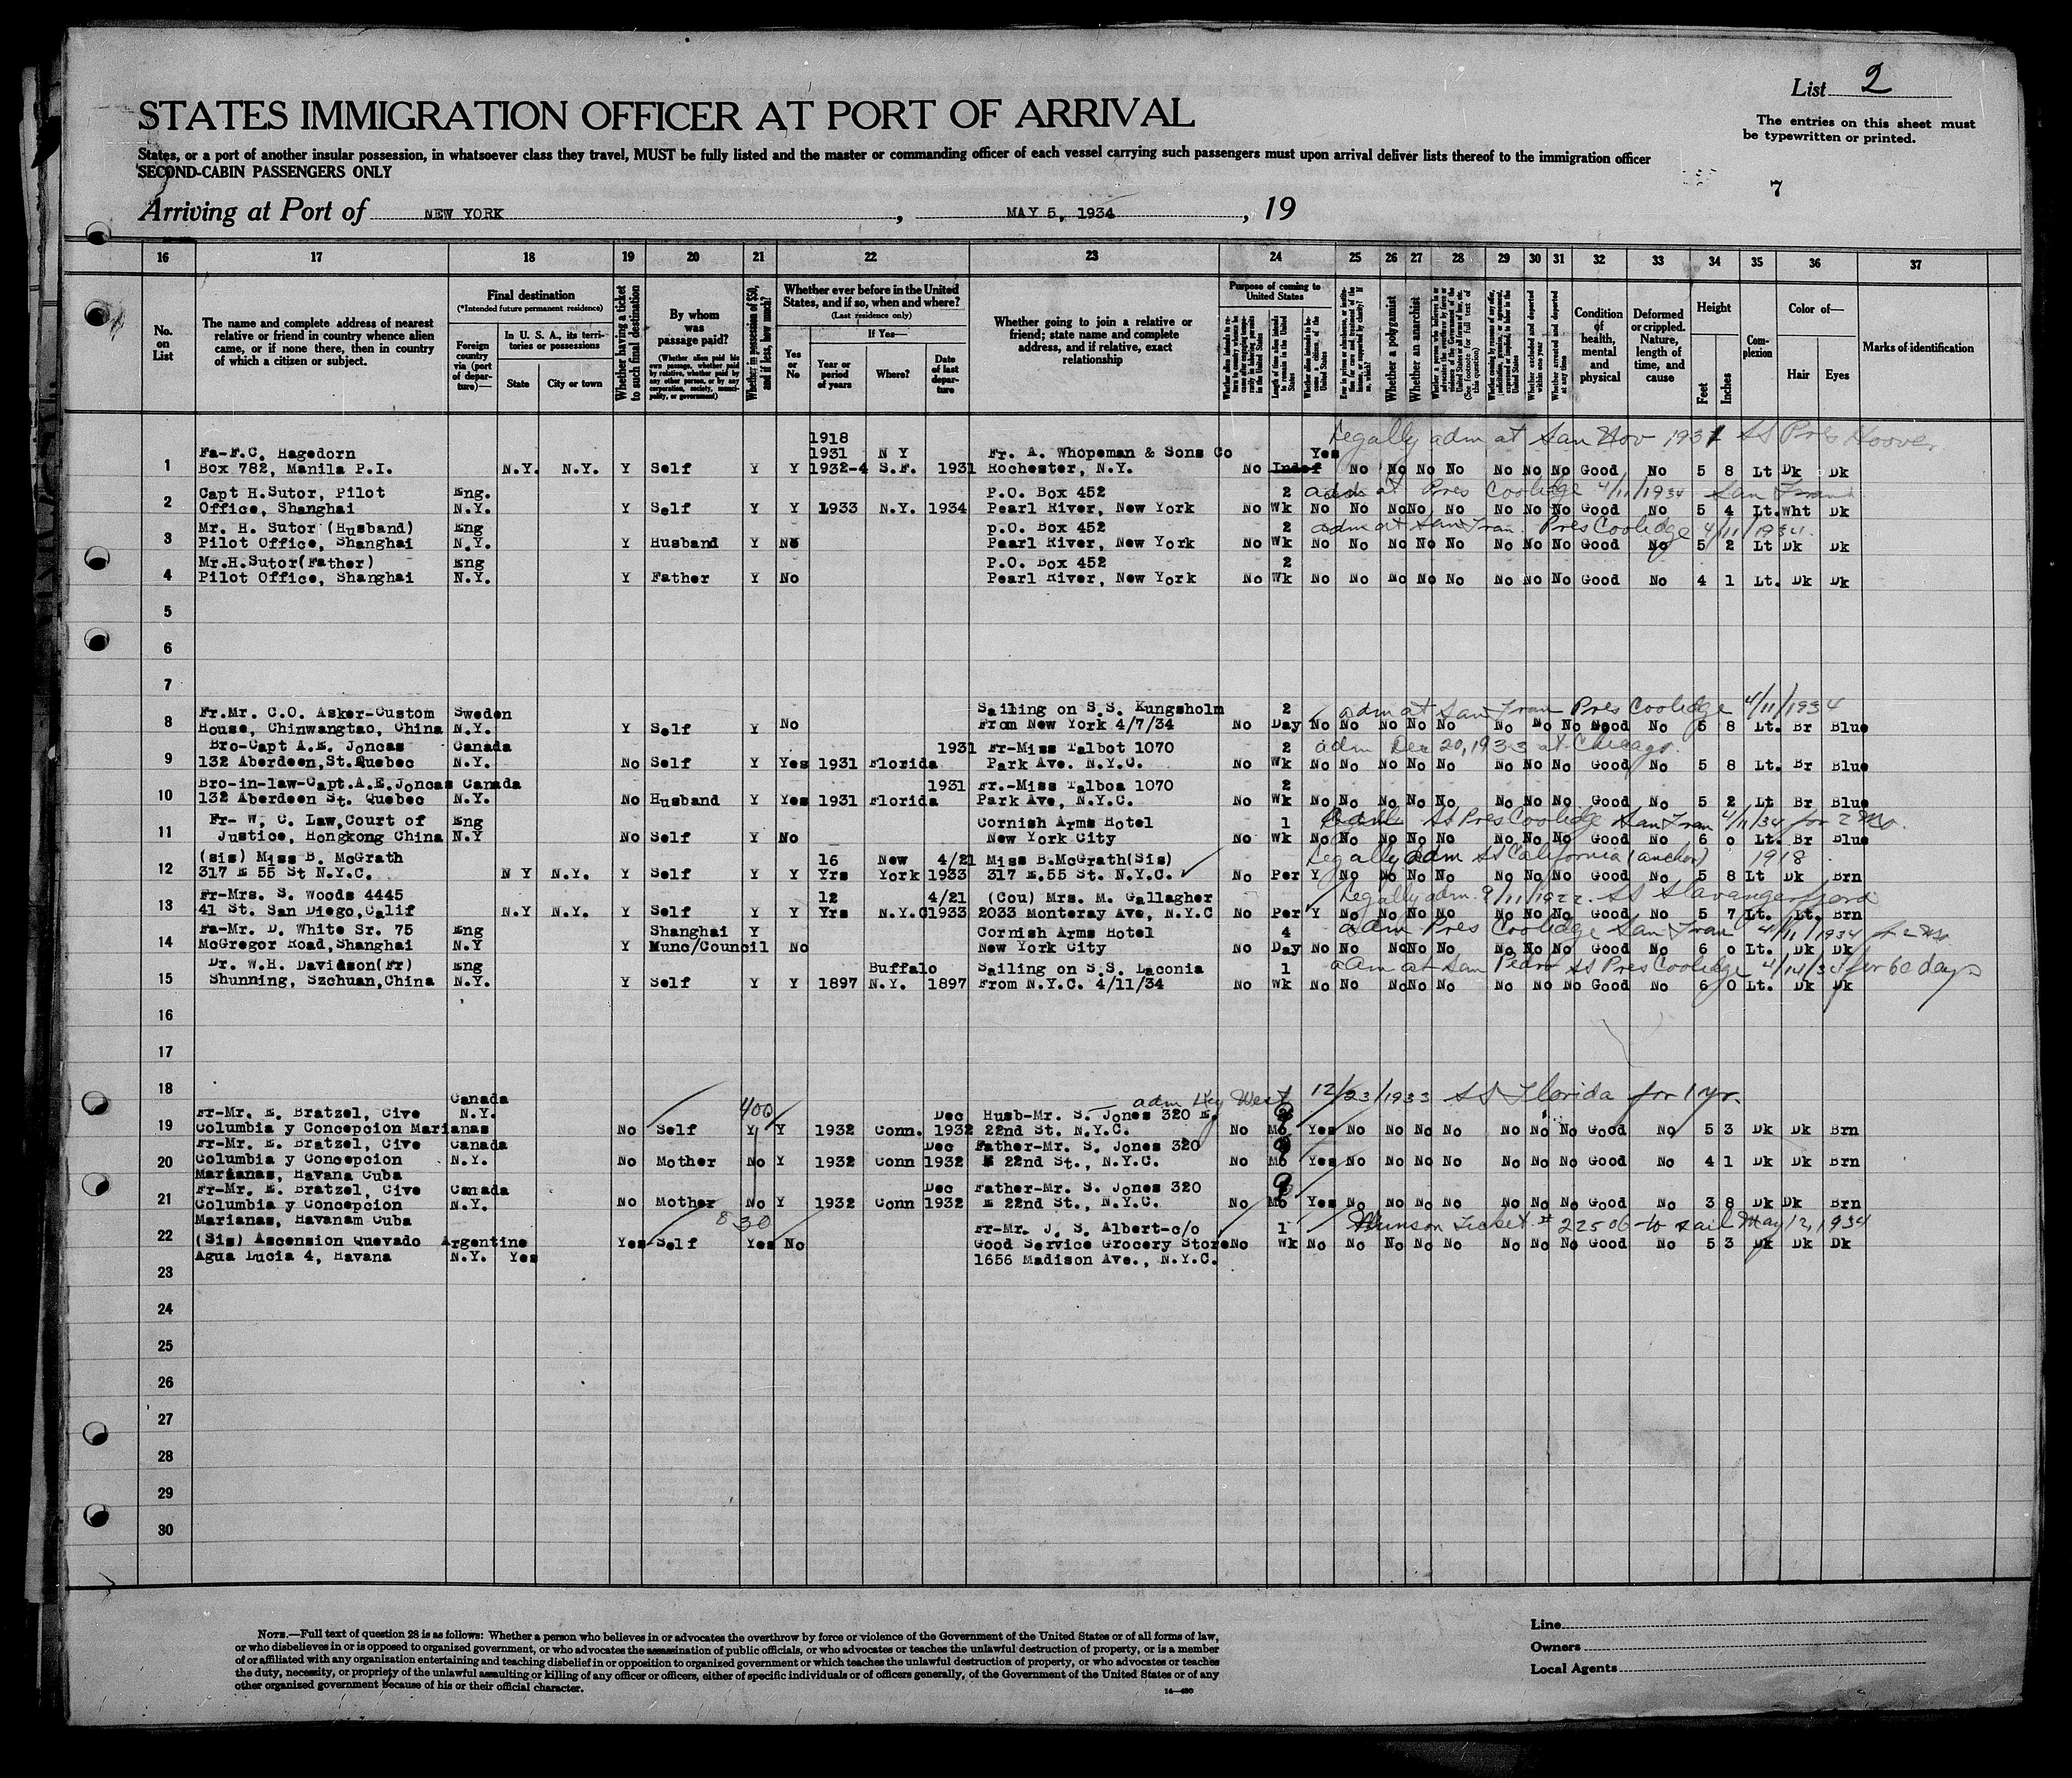 List 2
STATES IMMIGRATION OFFICER AT PORT OF ARRIVAL
The entries on this sheet must
be typewritten or printed.
States, or a port of another insular possession, in whatsoever class they travel, MUST be fully listed and the master or commanding officer of each vessel carrying such passengers must upon arrival deliver lists thereof to the immigration officer
SECOND-CABIN PASSENGERS ONLY
7
Arriving at Port of NEW YORK , MAY 5, 1934 , 19
16 17 18 19 20 21 22 23 24 25 26 27 28 29 30 31 32 33 34 35 36 37
No. on List
The name and complete address of nearest relative or friend in country whence alien came, or if none there, then in country of which a citizen or subject.
Final destination
(*Intended future permanent residence)
Foreign country via (port of departure)—
In U. S. A., its territories or possessions
State
City or town
Whether having a ticket to such final destination
By whom was passage paid?
(Whether alien paid his own passage, whether paid by relative, whether paid by any other person, or by any corporation, society, municipality, or government)
Whether in possession of $50, and if less, how much?
Whether ever before in the United States, and if so, when and where?
(Last residence only)
Yes or No
If Yes—
Year or period of years
Where?
Date of last departure
Whether going to join a relative or friend; state name and complete address, and if relative, exact relationship
Purpose of coming to United States
Length of time alien intends to remain in the United States
Whether a polygamist
Whether an anarchist
Condition of health, mental and physical
Deformed or crippled. Nature, length of time, and cause
Height
Feet
Inches
Complexion
Color of—
Hair
Eyes
Marks of identification
Legally adm at San Nov 1931 SS Pres Hoover
1918
Fa-F.C. Hagedorn 1931 N Y Fr. A. Whopeman & Sons Co Yes
1 Box 782, Manila P.I. N.Y. N.Y. Y Self Y Y 1932-4 S.F. 1931 Rochester, N.Y. No Indef No No No No No No No Good No 5 8 Lt Dk Dk
Capt H.Sutor, Pilot Eng. P.O. Box 452 2 adm at Pres Coolidge 4/11/1934 San Fran
2 Office, Shanghai N.Y. Y Self Y Y 1933 N.Y. 1934 Pearl River, New York No Wk No No No No No No No No Good No 5 4 Lt. Wht Dk
Mr. H. Sutor (Husband) Eng p.O. Box 452 2 adm at San Fran. Pres Coolidge 4/11/1934.
3 Pilot Office, Shanghai N.Y. Y Husband Y No Pearl River, New York No Wk No No No No No No No No Good No 5 2 Lt Dk Dk
Mr.H.Sutor(Father) Eng P.O. Box 452 2
4 Pilot Office, Shanghai N.Y. Y Father Y No Pearl River, New York No Wk No No No No No No No No Good No 4 1 Lt. Dk Dk
5
6
7
Fr.Mr. C.O. Asker-Custom Sweden Sailing on S.S. Kungsholm 2 adm at San Fran Pres Coolidge 4/11/1934
8 House, Chinwangtao, China N.Y. Y Self Y No From New York 4/7/34 No Day No No No No No No No No Good No 5 8 Lt. Br Blue
Bro-Capt A.E. Joncas Canada 1931 Fr-Miss Talbot 1070 2 adm Dec 20, 1933 at Chicago.
9 132 Aberdeen,St.Quebec N.Y. No Self Y Yes 1931 Florida Park Ave. N.Y.C. No Wk No No No No No No No No Good No 5 8 Lt. Br Blue
Bro-in-law-Capt.A.E.Joncas Canada 1931 Fr.-Miss Talboa 1070 2
10 132 Aberdeen St. Quebec N.Y. No Husband Y Yes 1931 Florida Park Ave, N.Y.C. No Wk No No No No No No No No Good No 5 2 Lt Br Blue
Fr- W, C. Law,Court of Eng Cornish Arms Hotel 1 SS Pres Coolidge San Fran 4/11/34 for 2 Mo.
11 Justice, Hongkong China N.Y No Self Y No New York City No Wk No No No No No No No No Good No 6 0 Lt. Br Blue
(sis) Miss B. McGrath 16 New 4/21 Miss B.McGrath(Sis) Legally adm SS California (anchor) 1918
12 317 E 55 St N.Y.C. N Y N.Y. Y Self Y Y Yrs York 1933 317 E.55 St. N.Y.C. No Per Y No No No No No No No Good No 5 8 Lt Dk Brn
Fr-Mrs. S. Woods 4445 12 4/21 (Cou) Mrs. M. Gallagher Legally adm. 9/11/1922. SS Stavangerfjord
13 41 St. San Diego,Calif N.Y N.Y. Y Self Y Y Yrs N.Y.C 1933 2033 Monteray Ave, N.Y.C No Per Y No No No No No No No Good No 5 7 Lt. Lt. Brn
Fa-Mr. D. White Sr. 75 Eng Shanghai Y Cornish Arms Hotel 4 adm Pres Coolidge San Fran 4/11/1934 for 2 Mo
14 McGregor Road,Shanghai N.Y Y Munc/Council No New York City No Day No No No No No No No No Good No 6 0 Lt. Dk Dk
Dr. W.H. Davidson(Fr) Eng Buffalo Sailing on S.S. Laconia 1 adm at San Pedro SS Pres Coolidge 4/14/34 for 60 days
15 Shunning, Szchuan,China N.Y. Y Self Y Y 1897 N.Y. 1897 From N.Y.C. 4/11/34 No Wk No No No No No No No No Good No 6 0 Lt. Dk Dk
16
17
18
Canada adm Key West 12/23/1933 SS Florida for 1 yr.
Fr-Mr. E. Bratzel, Cive N.Y. 400 Dec Husb-Mr. S. Jones 320 E. 9
19 Columbia y Concepcion Marianas No Self Y Y 1932 Conn. 1932 22nd St. N.Y.C. No Mo Yes No No No No No No No Good No 5 3 Dk Dk Brn
Fr-Mr. E. Bratzel, Cive Canada Dec Father-Mr. S. Jones 320 9
20 Columbia y Concepcion N.Y. No Mother No Y 1932 Conn 1932 E 22nd St., N.Y.C. No Mo Yes No No No No No No No Good No 4 1 Dk Dk Brn
Marianas, Havana Cuba
Fr-Mr. E. Bratzel, Cive Canada Dec Father-Mr. S. Jones 320 9
21 Columbia y Concepcion N.Y. No Mother No Y 1932 Conn 1932 E 22nd St., N.Y.C. No Mo Yes No No No No No No No Good No 3 8 Dk Dk Brn
Marianas, Havanam Cuba 830 Fr-Mr. J. S. Albert-c/o 1 Munson Ticket # 22506 to sail May 12, 1934
22 (Sis) Ascension Quevado Argentine Yes Self Yes No Good Service Grocery Store No Wk No No No No No No No No Good No 5 3 Dk Dk Dk
Agua Lucia 4, Havana N.Y. Yes 1656 Madison Ave., N.Y.C.
23
24
25
26
27
28
29
30
NOTE.—Full text of question 28 is as follows: Whether a person who believes in or advocates the overthrow by force or violence of the Government of the United States or of all forms of law,
or who disbelieves in or is opposed to organized government, or who advocates the assassination of public officials, or who advocates or teaches the unlawful destruction of property, or is a member
of or affiliated with any organization entertaining and teaching disbelief in or opposition to organized government or which teaches the unlawful destruction of property, or who advocates or teaches
the duty, necessity, or propriety of the unlawful assaulting or killing of any officer or officers, either of specific individuals or of officers generally, of the Government of the United States or of any
other organized government because of his or their official character.
14—480
Line
Owners
Local Agents